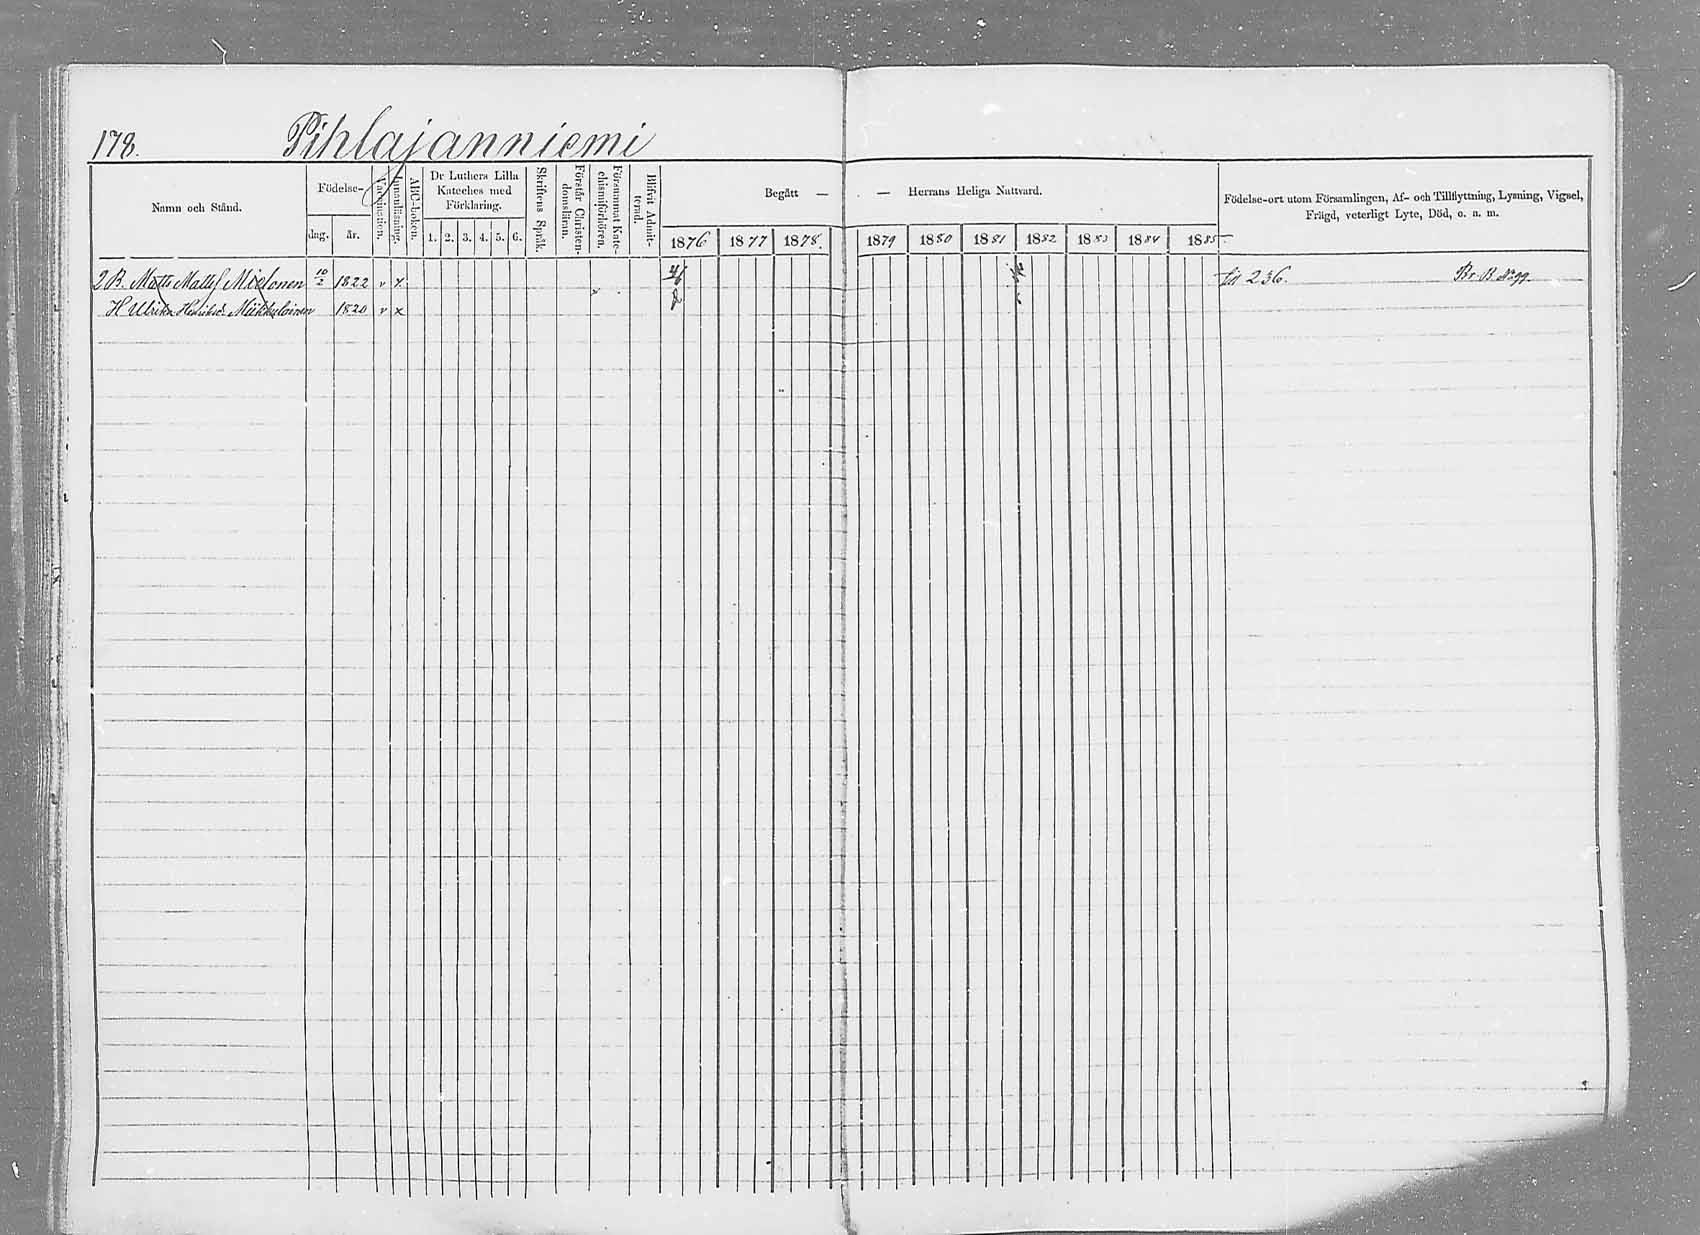 178. Pihlajanniemi
Namn och Stånd.
Födelse-
dag. år.
Vaccination.
Innanläsning.
ABC-boken.
Dr Luthers Lilla
Kateches med
Förklaring.
1. 2. 3. 4. 5. 6.
Skriftens Språk.
Förstår Christen-
domslärnn.
Försummat Kate-
chismiförhören.
Blifvit Admit-
terad.
Begått — — Herrans Heliga Nattvard.
1876 1877 1878. 1879 1880 1881 1882 1883 1884 1885
Födelse-ort utom Församlingen, Af- och Tillflyttning, Lysning, Vigsel,
Frägd, veterligt Lyte, Död, o. s. m.
2 B. Matts Mattsf Mielonen 10/2 1822 v x till 236.
H Ulrika Henriksdr Miikkulainen 1820 v x